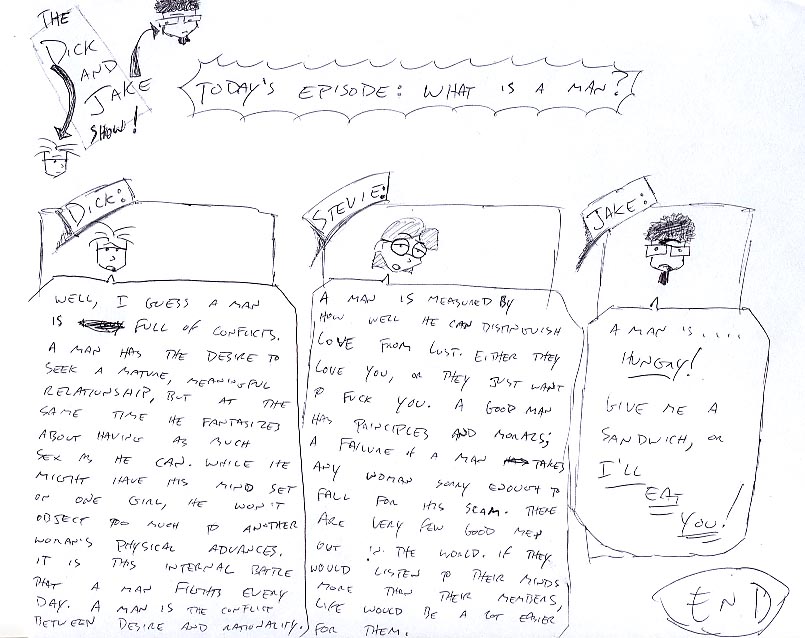 THE
DICK
AND
JAKE
SHOW!
TODAY'S EPISODE: WHAT IS A MAN?
DICK:
WELL, I GUESS A MAN
IS FULL OF CONFLICTS.
A MAN HAS THE DESIRE TO
SEEK A MATURE, MEANINGFUL
RELATIONSHIP, BUT AT THE
SAME TIME HE FANTASIZES
ABOUT HAVING AS MUCH
SEX AS HE CAN. WHILE HE
MIGHT HAVE HIS MIND SET
ON ONE GIRL, HE WON'T
OBJECT TOO MUCH TO ANOTHER
WOMAN'S PHYSICAL ADVANCES.
IT IS THIS INTERNAL BATTLE
THAT A MAN FIGHTS EVERY
DAY. A MAN IS THE CONFLICT
BETWEEN DESIRE AND RATIONALITY.
STEVIE:
A MAN IS MEASURED BY
HOW WELL HE CAN DISTINGUISH
LOVE FROM LUST. EITHER THEY
LOVE YOU, OR THEY JUST WANT
TO FUCK YOU. A GOOD MAN
HAS PRINCIPLES AND MORALS;
A FAILURE OF A MAN TAKES
ANY WOMAN SORRY ENOUGH TO
FALL FOR HIS SCAM. THERE
ARE VERY FEW GOOD MEN
OUT IN THE WORLD. IF THEY
WOULD LISTEN TO THEIR MINDS
MORE THAN THEIR MEMBERS,
LIFE WOULD BE A LOT EASIER
FOR THEM.
JAKE:
A MAN IS....
HUNGRY!
GIVE ME A
SANDWICH, OR
I'LL
EAT
YOU!
END